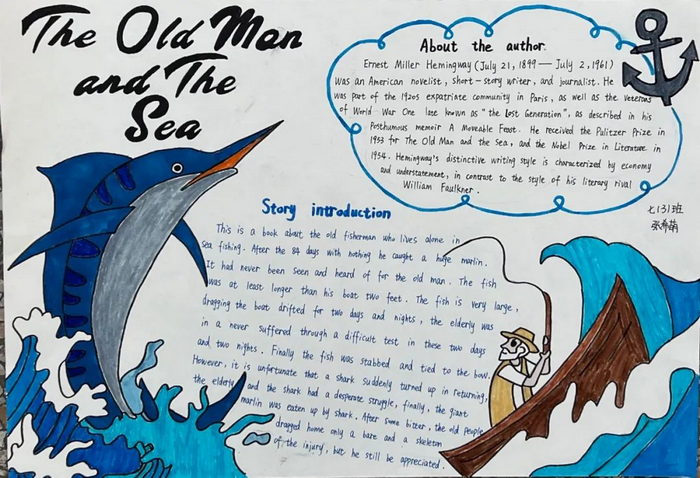 The Old Man
and The
Sea
About the author.
Ernest Miller Hemingway (July 21, 1899 — July 2, 1961)
was an American novelist, short-story writer, and journalist. He
was part of the 1920s expatriate community in Paris, as well as the veterans
of World War One late known as "the Lost Generation", as described in his
Posthumous memoir A Moveable Feast. He received the Pulitzer Prize in
1953 for The Old Man and the Sea, and the Nobel Prize in Literature in
1954. Hemingway's distinctive writing style is characterized by economy
and understatement, in contrast to the style of his literary rival
William Faulkner.
七131班
张希萌
Story introduction
This is a book about the old fisherman who lives alone in
sea fishing. After the 84 days with nothing he caught a huge marlin.
It had never been seen and heard of for the old man. The fish
was at least longer than his boat two feet. The fish is very large,
dragging the boat drifted for two days and nights, the elderly was
in a never suffered through a difficult test in these two days
and two nights. Finally the fish was stabbed and tied to the bow.
However, it is unfortunate that a shark suddenly turned up in returning,
the elderly and the shark had a desperate struggle, finally, the giant
marlin was eaten up by shark. After some bitter, the old people
dragged home only a bare and a skeleton
of the injury, but he still be appreciated.